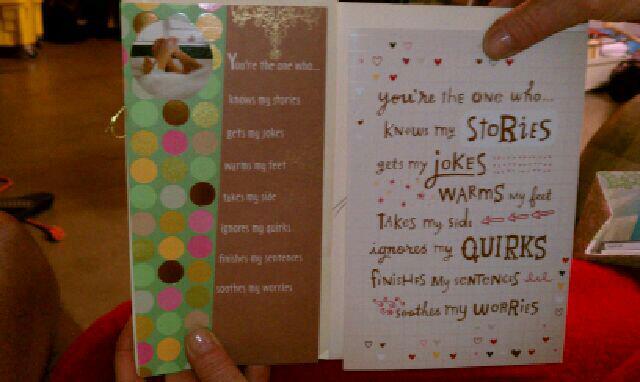 You're the one who...
knows my stories
gets my jokes
warms my feet
takes my side
ignores my quirks
finishes my sentences
soothes my worries
you're the one who...
knows my STORIES
gets my jOKES
WARMS my feet
TAKES my side
ignores my QUIRKS
finisHes my sentences
soothes my WORRIES